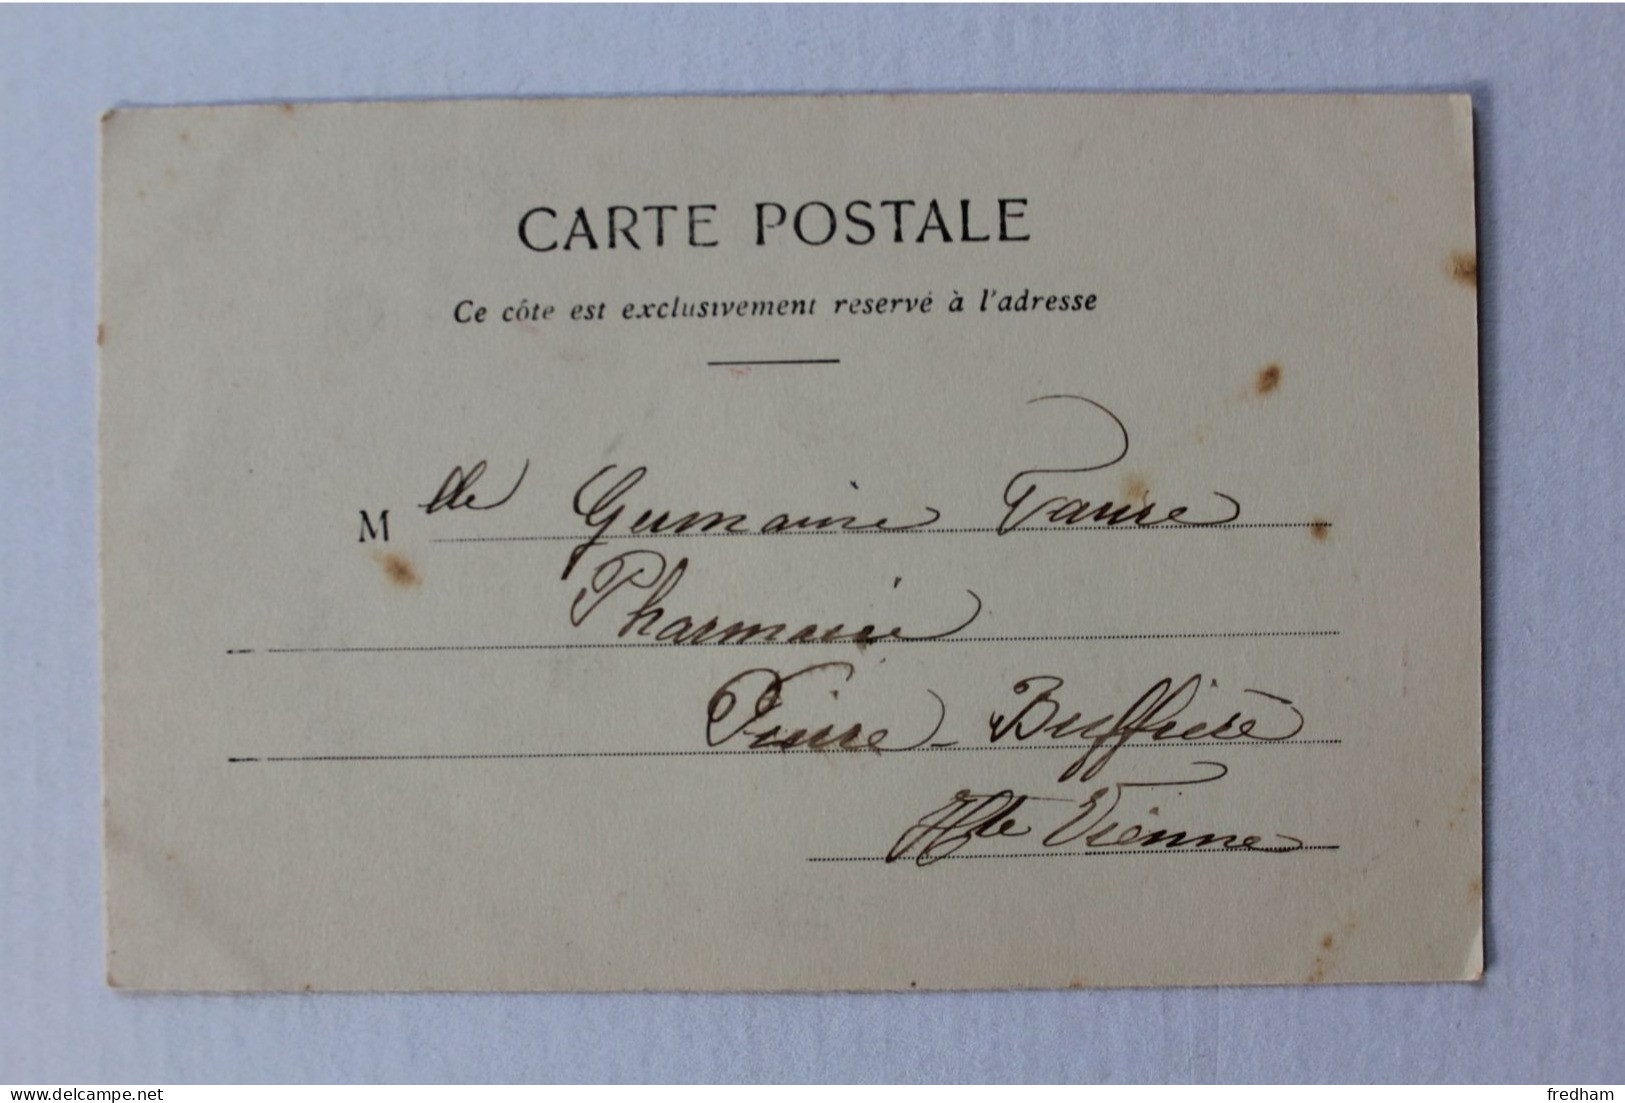 CARTE POSTALE
Ce côte est exclusivement reservé à l'adresse
Mlle Germaine Faure
Pharmacie
Pierre-Buffière
Hte Vienne
delcampe.net
fredham